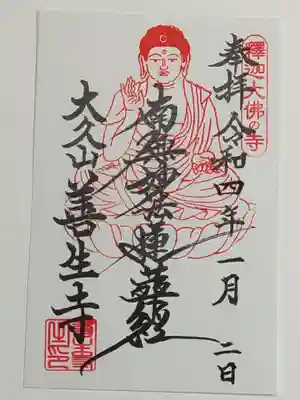 釋迦大佛の寺
奉拝 令和四年一月二日
南無妙法蓮華経
大久山 善生寺